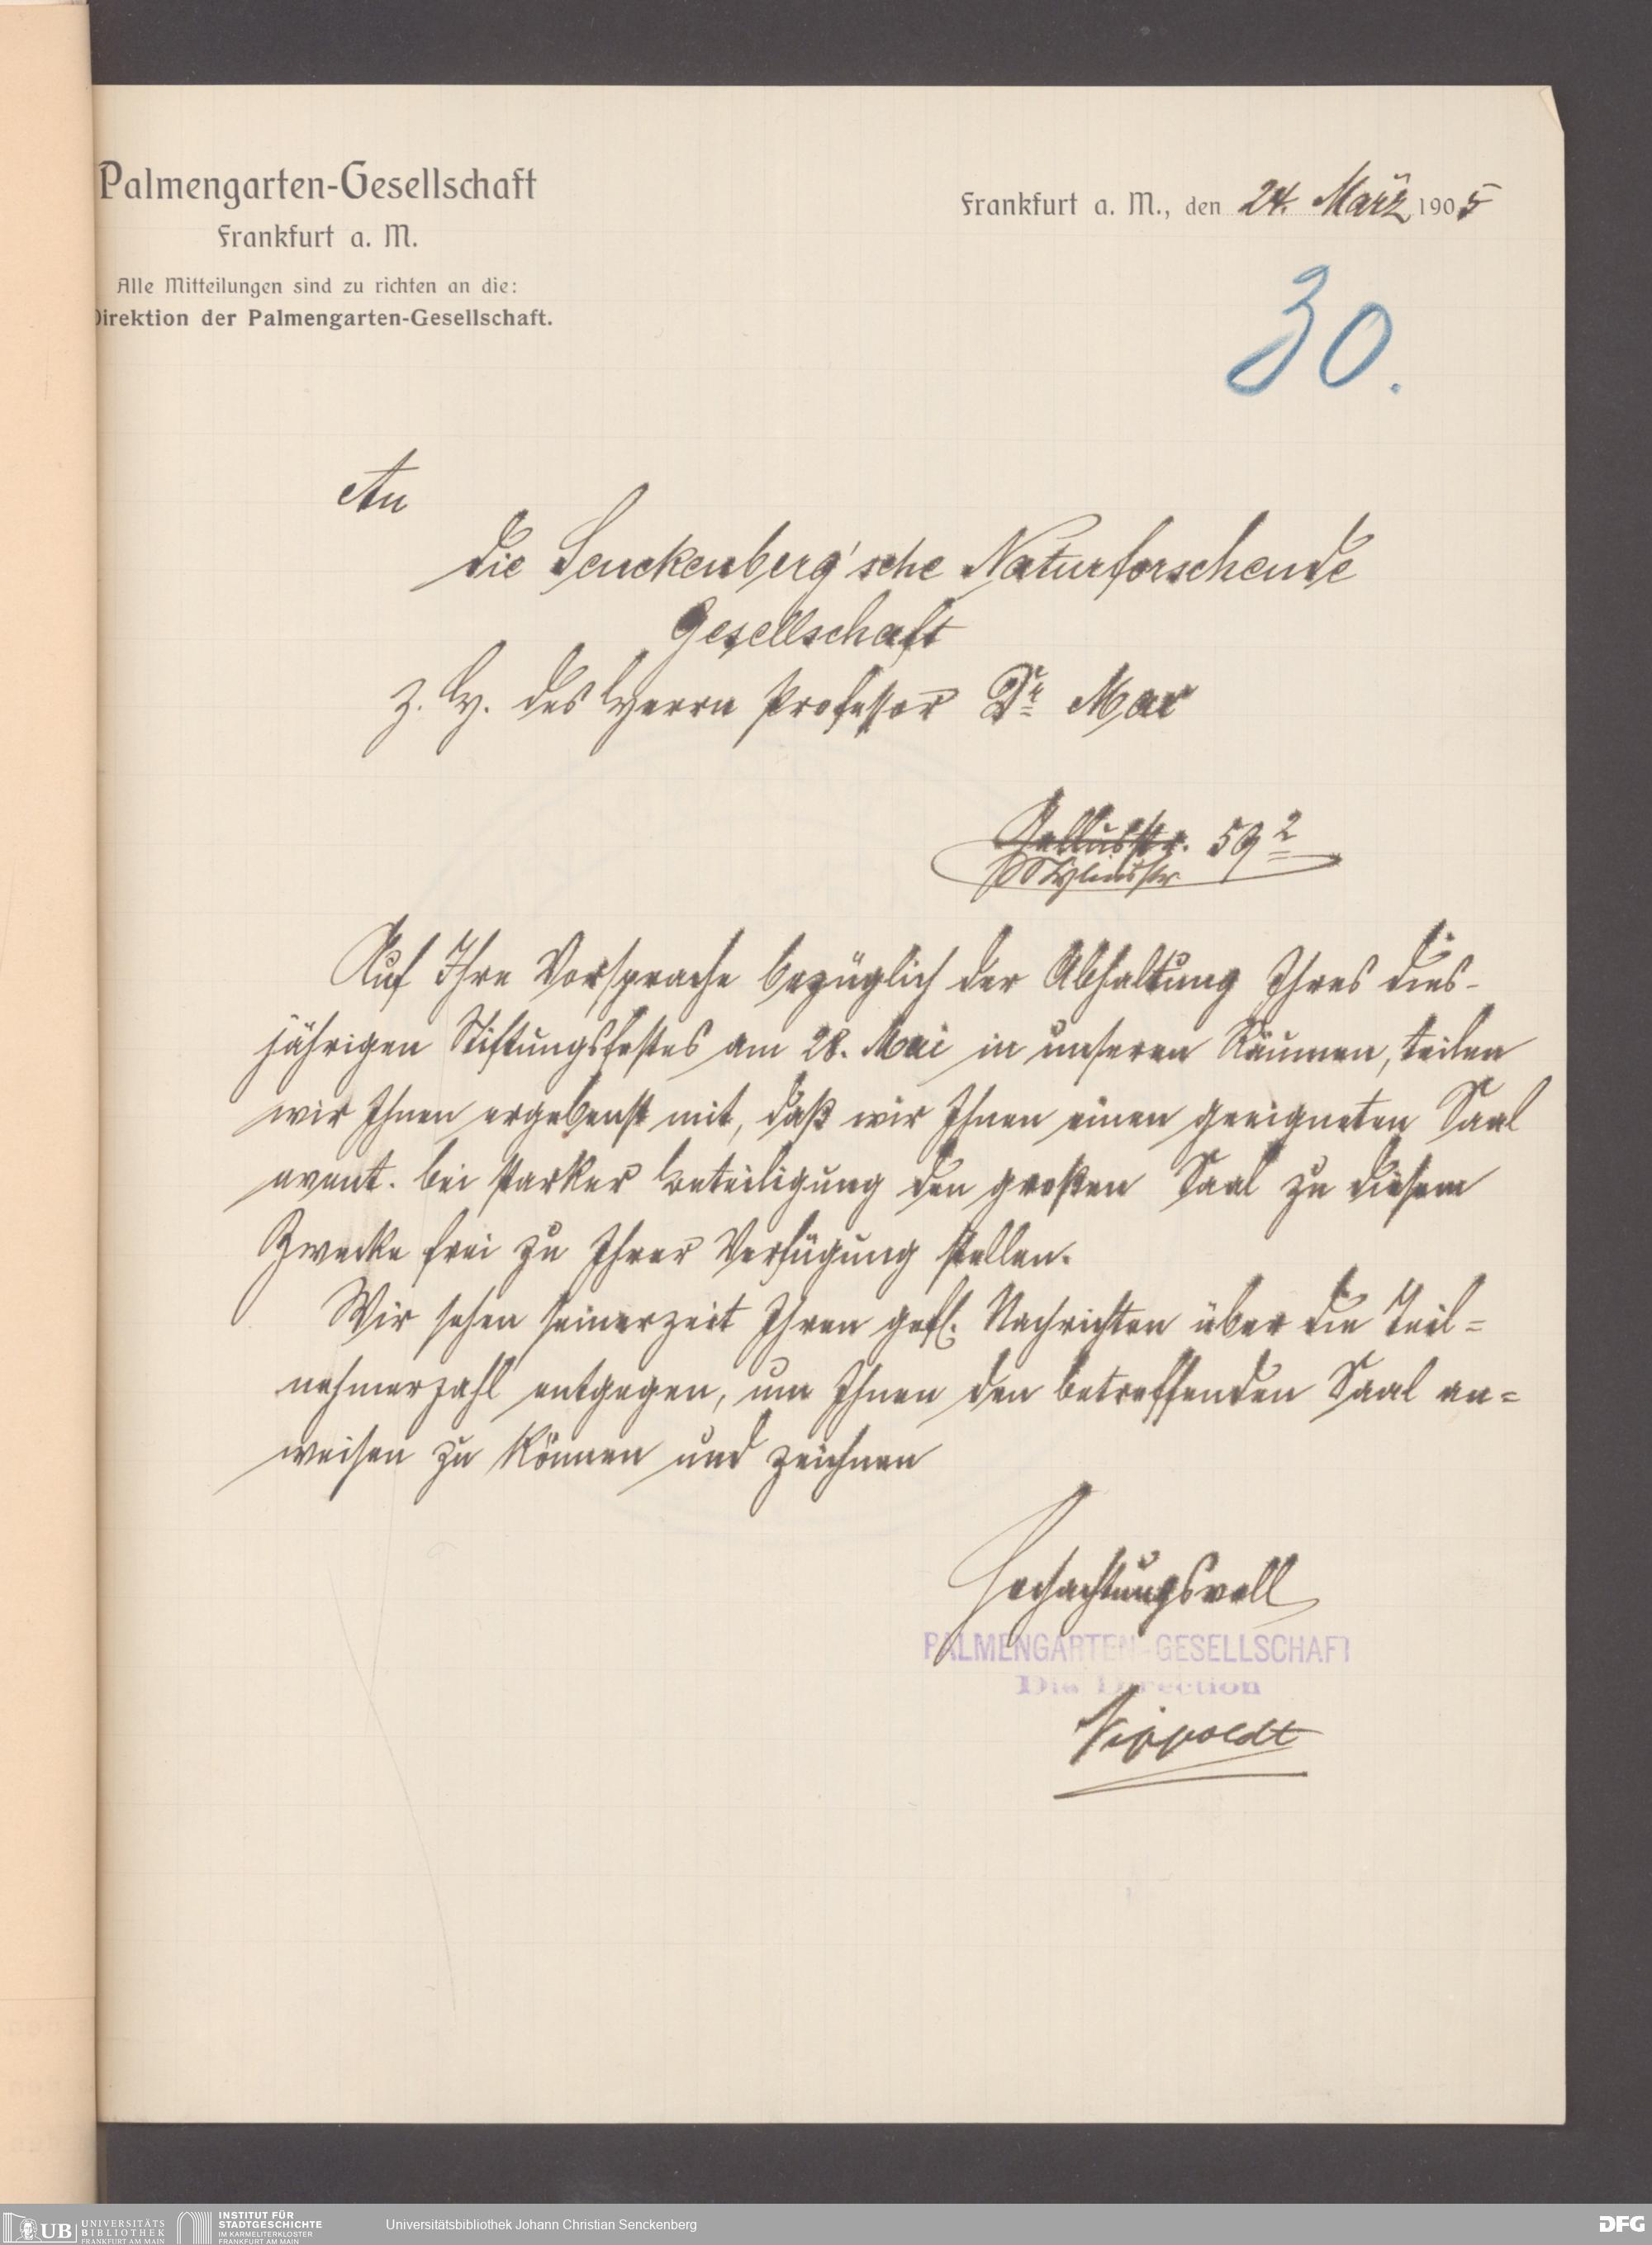 Palmengarten-Gesellschaft
Frankfurt a. M.
Alle Mitteilungen sind zu richten an die:
Direktion der Palmengarten-Gesellschaft.
Frankfurt a. M., den 24. März 1905
30.
An
die Senckenberg'sche Naturforschende
Gesellschaft
z. H. des Herrn Professor Dr
59 2
Myliusstr.
Auf Ihre Vorsprache bezüglich der Abhaltung Ihres dies-
jährigen Stiftungsfestes am 28. Mai in unseren Räumen, teilen
wir Ihnen ergebenst mit, daß wir Ihnen einen geeigneten Saal
event. bei starker Beteiligung den großen Saal zu diesem
Zwecke frei zu Ihrer Verfügung stellen.
Wir sehen seinerzeit Ihren gefl. Nachrichten über die Teil=
nehmerzahl entgegen, um Ihnen den betreffenden Saal an=
weisen zu können und zeichnen
Hochachtungsvoll
PALMENGARTEN-GESELLSCHAFT
Die Direction
Sippoldt
UB UNIVERSITÄTS
BIBLIOTHEK
FRANKFURT AM MAIN
INSTITUT FÜR
STADTGESCHICHTE
IM KARMELITERKLOSTER
FRANKFURT AM MAIN
Universitätsbibliothek Johann Christian Senckenberg
DFG